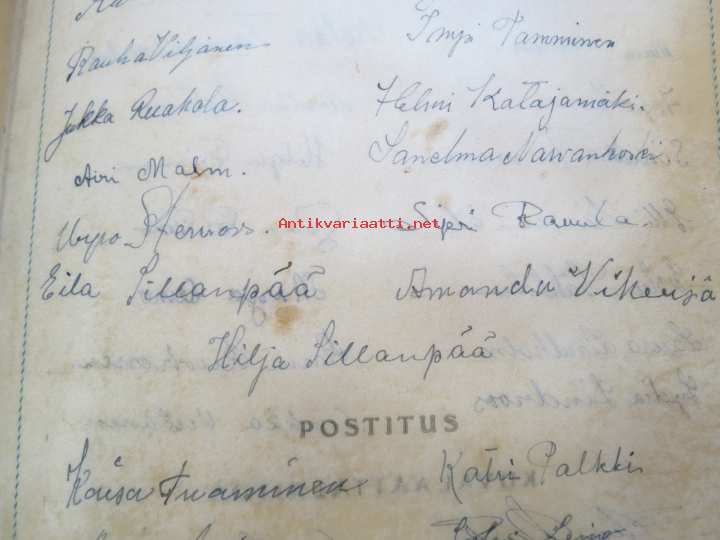 Rauha Viljanen Impi Tamminen
Jukka Ruohola. Helmi Katajamäki.
Airi Malm. Sanelma Narvankoski
Stenroos. Antikvariaatti.net
Eila Sillanpää Amanda
Hilja Sillanpää
POSTITUS
Kaisa Tuominen Katri Palkki